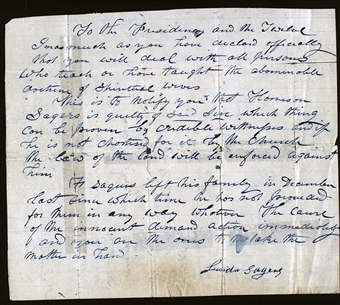 To the Presidency and the Twelve
Inasmuch as you have declared officially
that you will deal with all persons
who teach or have taught the abominable
doctrine of Spiritual wives
This is to notify you that Harrison
Sagers is guilty of said Sin which thing
can be proven by credible witnesses and if
he is not chastised for it by the church
the law of the land will be enforced against
him
H Sagers left his family in December
last since which time he has not provided
for them in any way whatever The cause
of the innocent demand action immediately
and you are the ones to take the
matter in hand
Lucinda Sagers